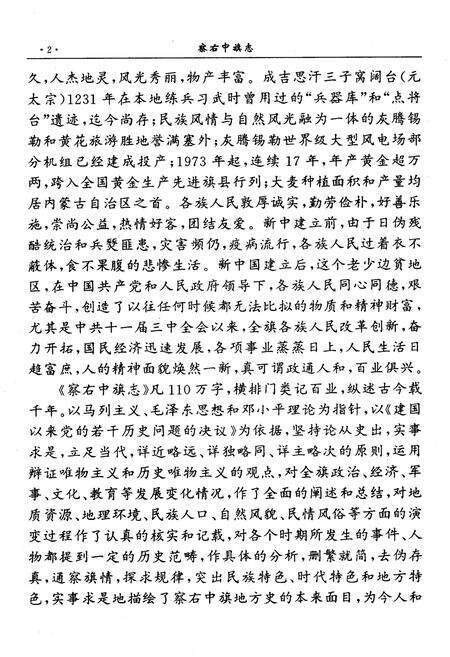 ·2· 察右中旗志
久,人杰地灵,风光秀丽,物产丰富。成吉思汗三子窝阔台(元
太宗)1231年在本地练兵习武时曾用过的“兵器库”和“点将
台”遗迹,迄今尚存;民族风情与自然风光融为一体的灰腾锡
勒和黄花旅游胜地誉满塞外;灰腾锡勒世界级大型风电场部
分机组已经建成投产;1973年起,连续17年,年产黄金超万
两,跨入全国黄金生产先进旗县行列;大麦种植面积和产量均
居内蒙古自治区之首。各族人民敦厚诚实,勤劳俭朴,好善乐
施,崇尚公益,热情好客,团结友爱。新中建立前,由于日伪残
酷统治和兵燹匪患,灾害频仍,疫病流行,各族人民过着衣不
蔽体,食不果腹的悲惨生活。新中国建立后,这个老少边贫地
区,在中国共产党和人民政府领导下,各族人民同心同德,艰
苦奋斗,创造了以往任何时候都无法比拟的物质和精神财富,
尤其是中共十一届三中全会以来,全旗各族人民改革创新,奋
力开拓,国民经济迅速发展,各项事业蒸蒸日上,人民生活日
趋富庶,人的精神面貌焕然一新,真可谓政通人和,百业俱兴。
《察右中旗志》凡110万字,横排门类记百业,纵述古今载
千年。以马列主义、毛泽东思想和邓小平理论为指针,以《建国
以来党的若干历史问题的决议》为依据,坚持论从史出,实事
求是,立足当代,详近略远、详独略同、详主略次的原则,运用
辩证唯物主义和历史唯物主义的观点,对全旗政治、经济、军
事、文化、教育等发展变化情况,作了全面的阐述和总结,对地
质资源、地理环境、民族人口、自然风貌、民情风俗等方面的演
变过程作了认真的核实和记载,对各个时期所发生的事件、人
物都提到一定的历史范畴,作具体的分析,删繁就简,去伪存
真,通察旗情,探求规律,突出民族特色、时代特色和地方特
色,实事求是地描绘了察右中旗地方史的本来面目,为今人和